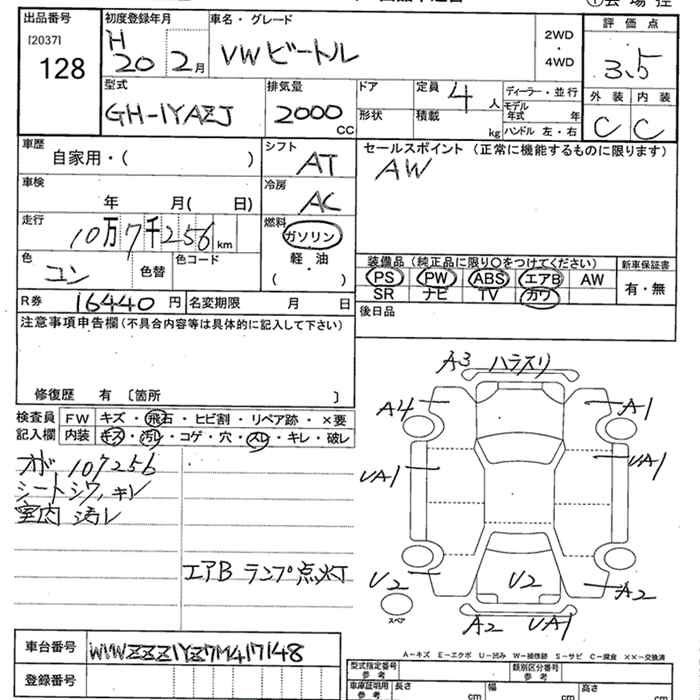 出品番号
[2037]
128
初度登録年月
H
20 2月
車名・グレード
VWビートル
2WD
・
4WD
評価点
3.5
外装 内装
C C
型式
GH-1YAZJ
排気量
2000
CC
ドア
形状
定員 4人
積載 kg
ディーラー・並行
モデル年式 年
ハンドル 左・右
車歴
自家用・( )
シフト
AT
セールスポイント (正常に機能するものに限ります)
AW
車検
年 月( 日)
冷房
AC
走行
10万7千256km
燃料
ガソリン
軽・油
( )
色
コン
色替
色コード
装備品(純正品に限り〇をつけてください)
PS PW ABS エアB AW
SR ナビ TV カワ
新車保証書
有・無
R券 16440円
名変期限 月 日
後日品
注意事項申告欄(不具合内容等は具体的に記入して下さい)
修復歴 有 〔箇所 〕
検査員 FW キズ・飛石・ヒビ割・リペア跡・×要
記入欄 内装 キズ・汚レ・コゲ・穴・スレ・キレ・破レ
オド 107256
シートシワ,キレ
室内 汚レ
エアB ランプ点灯
A3 ハラスリ
A4 A1
UA1 UA1
U2 U2 A2
スペア
A2 UA1
車台番号 WVWZZZ1YZ7M417148
登録番号
A-キズ E-エクボ U-凹み W-補修跡 S-サビ C-腐食 ××-交換済
型式指定番号 参考
類別区分番号 参考
車庫証明用 参考
長さ cm 幅 cm 高さ cm